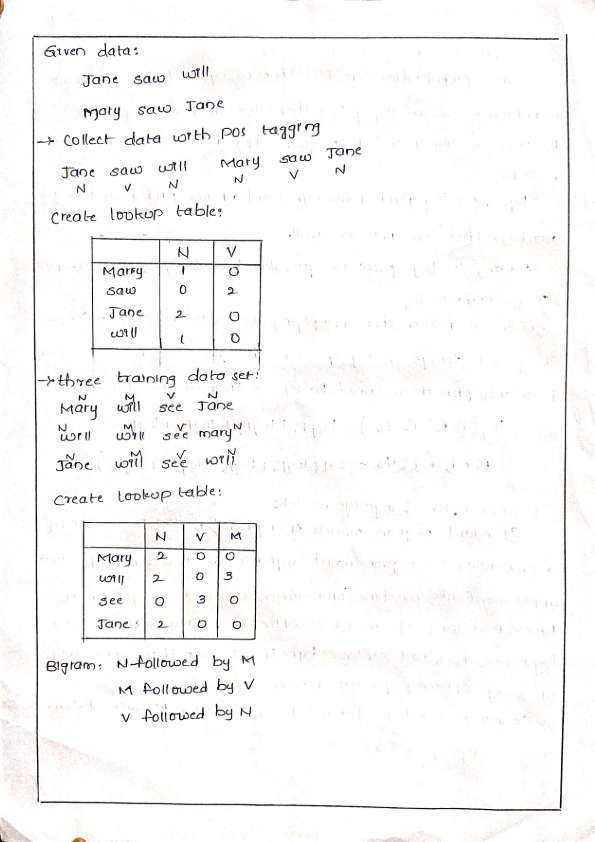 Given data:
Jane saw will
Mary saw Jane
→ collect data with pos tagging
Jane saw will Mary saw Jane
N V N N V N
create lookup table:
N V
Marry 1 0
saw 0 2
Jane 2 0
will 1 0
→ three training data set:
N M V N
Mary will see Jane
N M V N
will will see mary
N M V N
Jane will see will
create lookup table:
N V M
Mary 2 0 0
will 2 0 3
see 0 3 0
Jane: 2 0 0
Bigram: N-followed by M
M followed by V
V followed by N